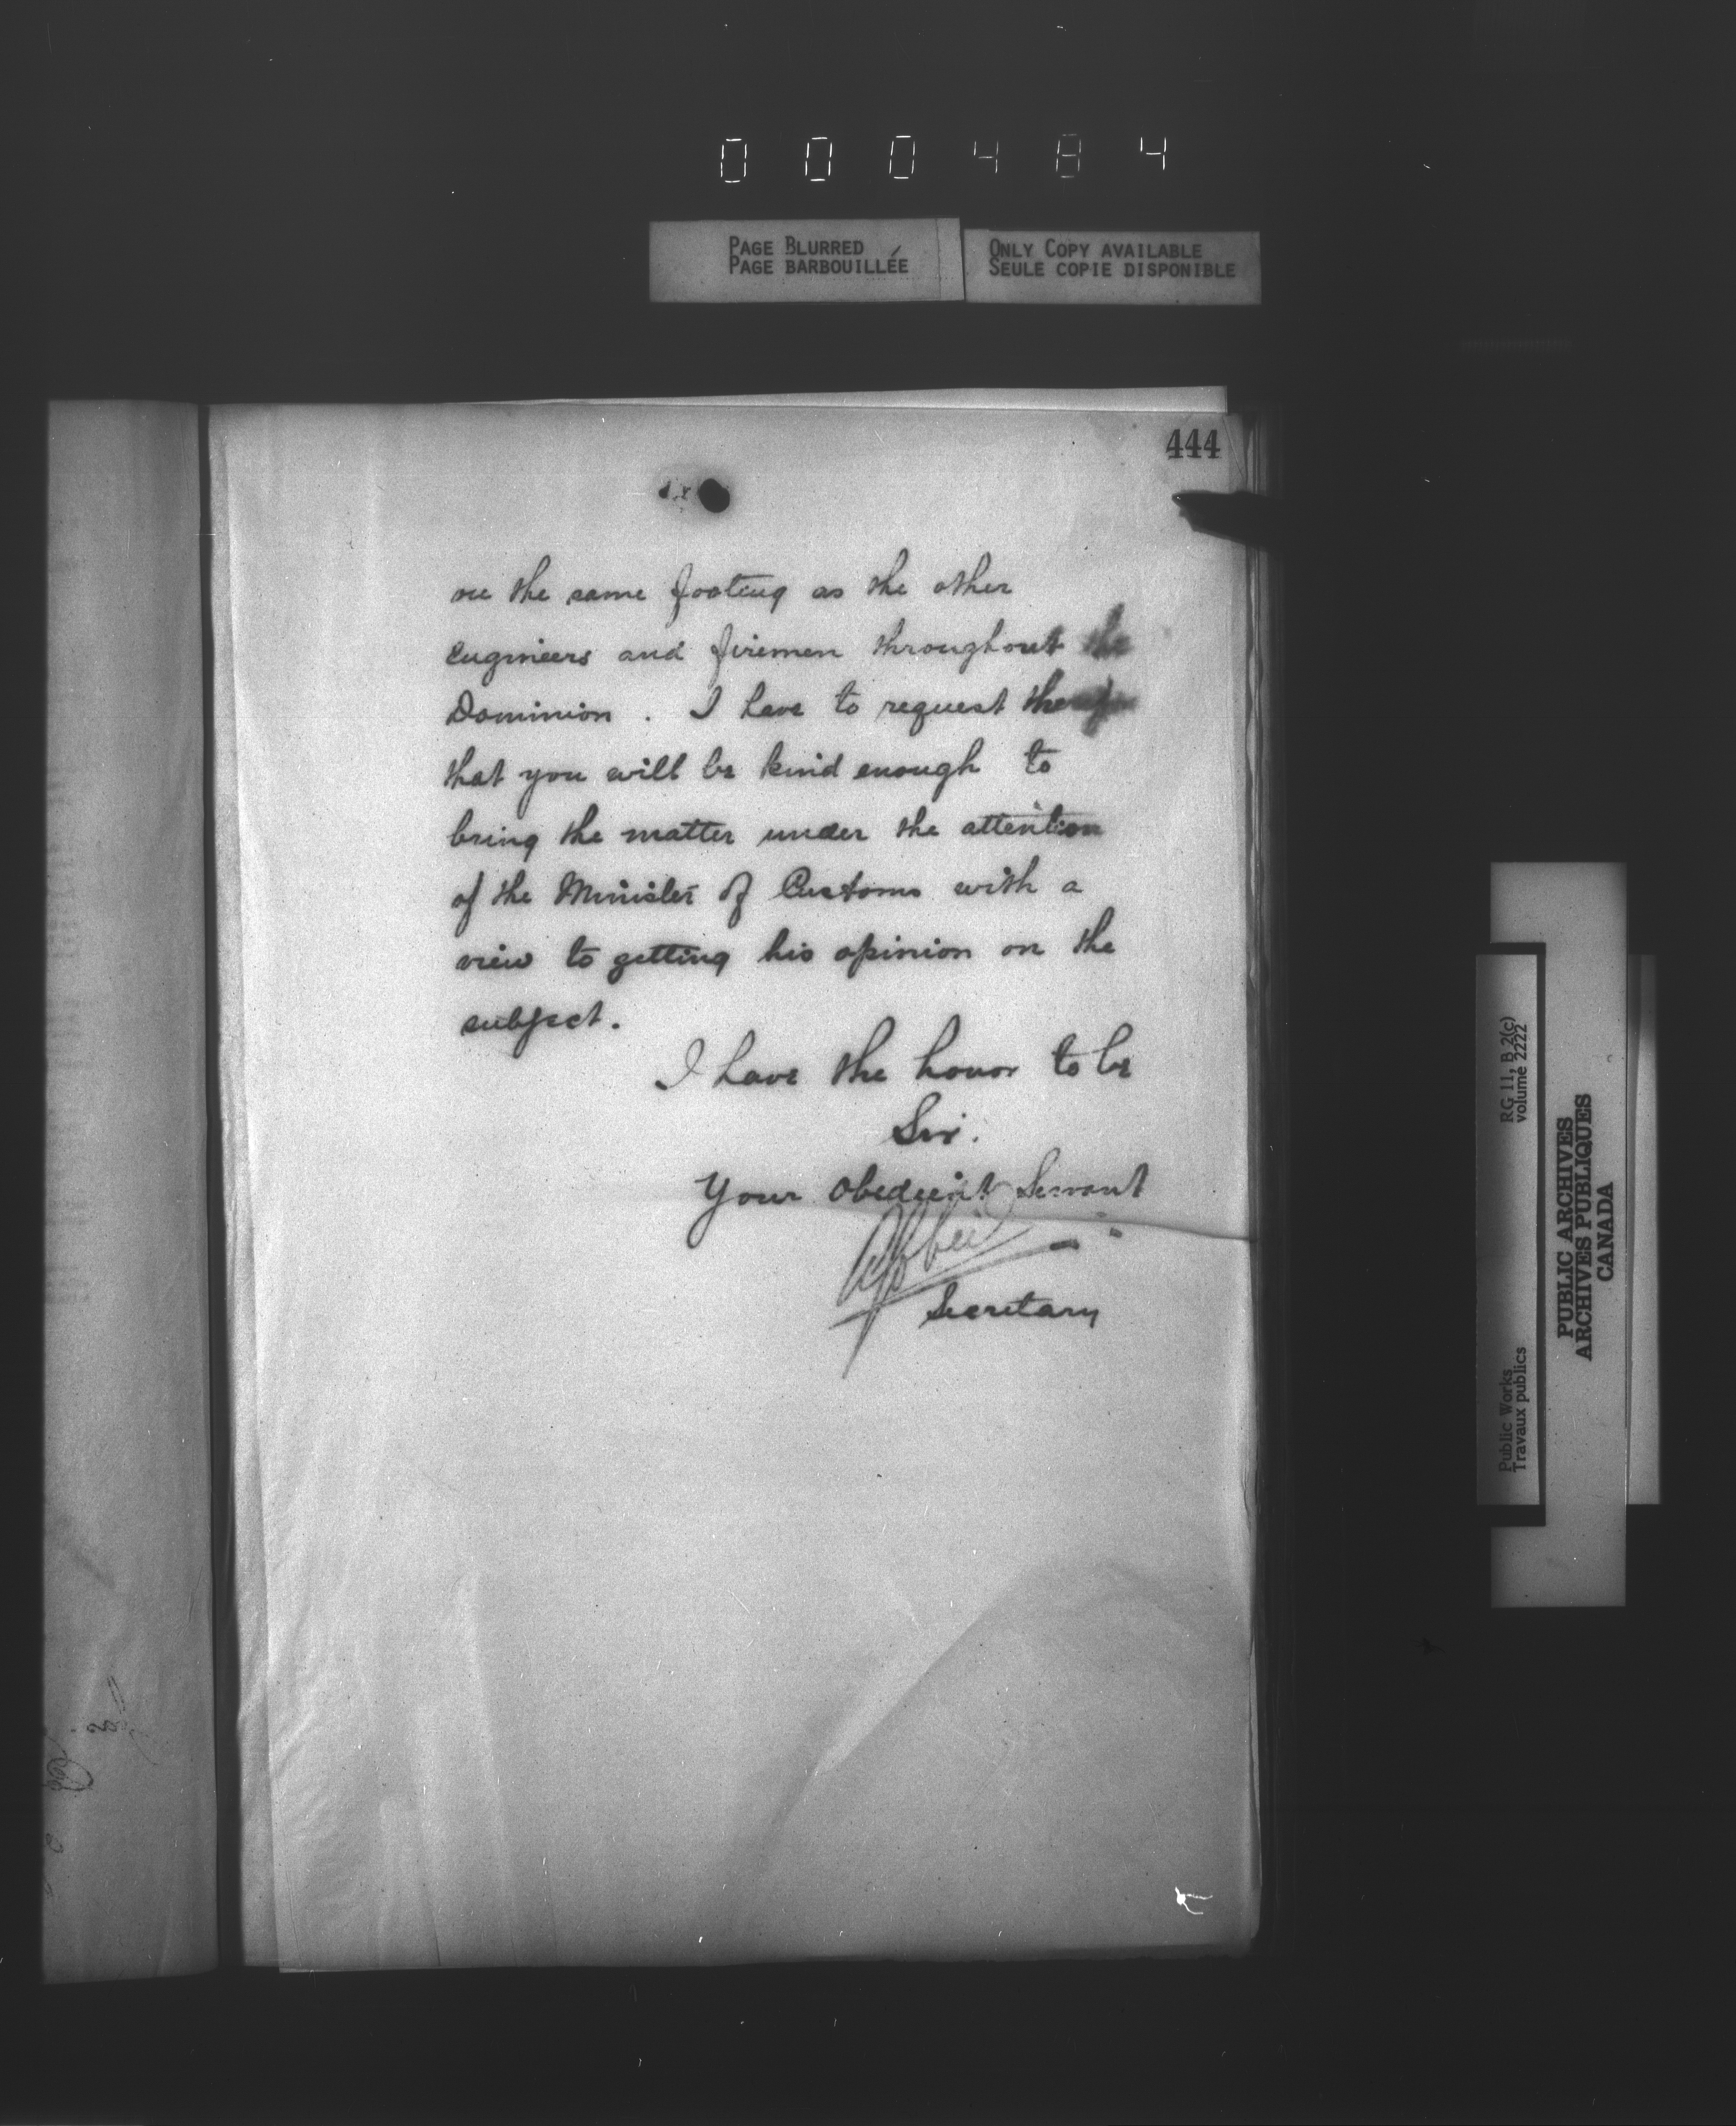 000484
PAGE BLURRED
PAGE BARBOUILLÉE
ONLY COPY AVAILABLE
SEULE COPIE DISPONIBLE
444
on the same footing as the other
Engineers and firemen throughout the
Dominion. I have to request
that you will be kind enough to
bring the matter under the attention
of the Minister of Customs with a
view to getting his opinion on the
subject.
I have the honor to be
Sir.
Your Obedient Servant
Secretary
RG 11, B 2(c)
volume 2222
Public Works
Travaux publics
PUBLIC ARCHIVES
ARCHIVES PUBLIQUES
CANADA